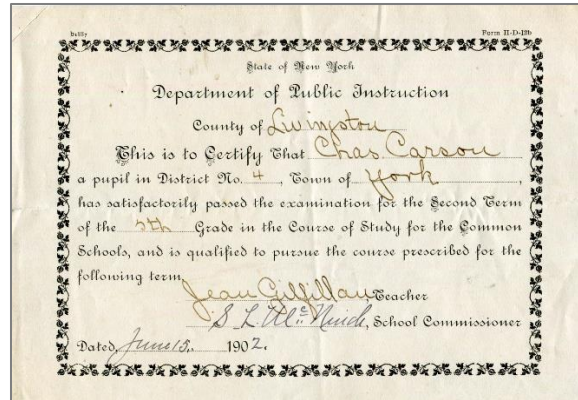 Form II-D-12b
State of New York
Department of Public Instruction
County of Livingston
This is to Certify That Chas. Carson
a pupil in District No. 4, Town of York,
has satisfactorily passed the examination for the Second Term
of the 5th Grade in the Course of Study for the Common
Schools, and is qualified to pursue the course prescribed for the
following term.
Jean Gilfillan Teacher
S L McNinch, School Commissioner
Dated, June 15, 1902.